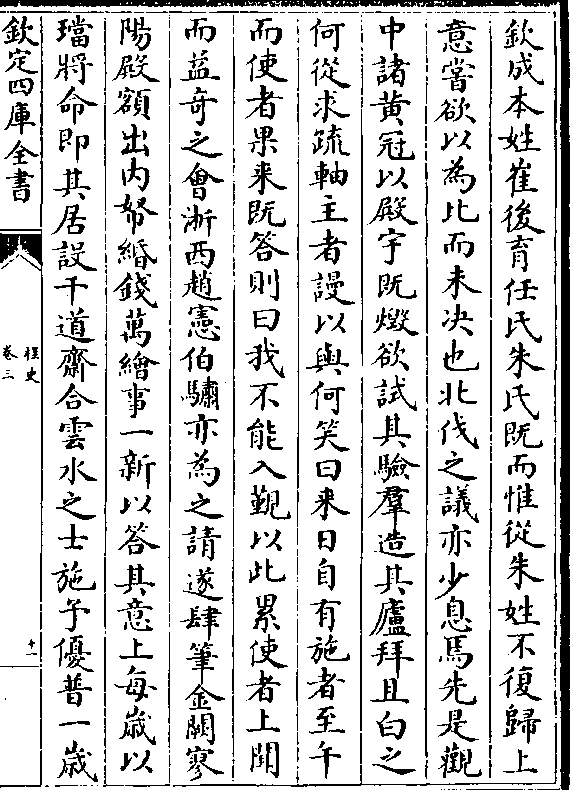 欽成本姓崔後育任氏朱氏既而惟從朱姓不復歸上
意嘗欲以為比而未決也北伐之議亦少息焉先是觀
中諸黃冠以殿宇既燬欲試其驗羣造其廬拜且白之
何從求疏軸主者謾以與何笑曰来日自有施者至午
而使者果来既答則曰我不能入覲以此累使者上聞
而益奇之會浙西趙憲伯驌亦為之請遂肆筆金闕寥
陽殿額出内帑緡錢萬繪事一新以答其意上每歳以
璫將命即其居設千道齋合雲水之士施予優普一歳
欽定四庫全書
桯史
卷三
十一